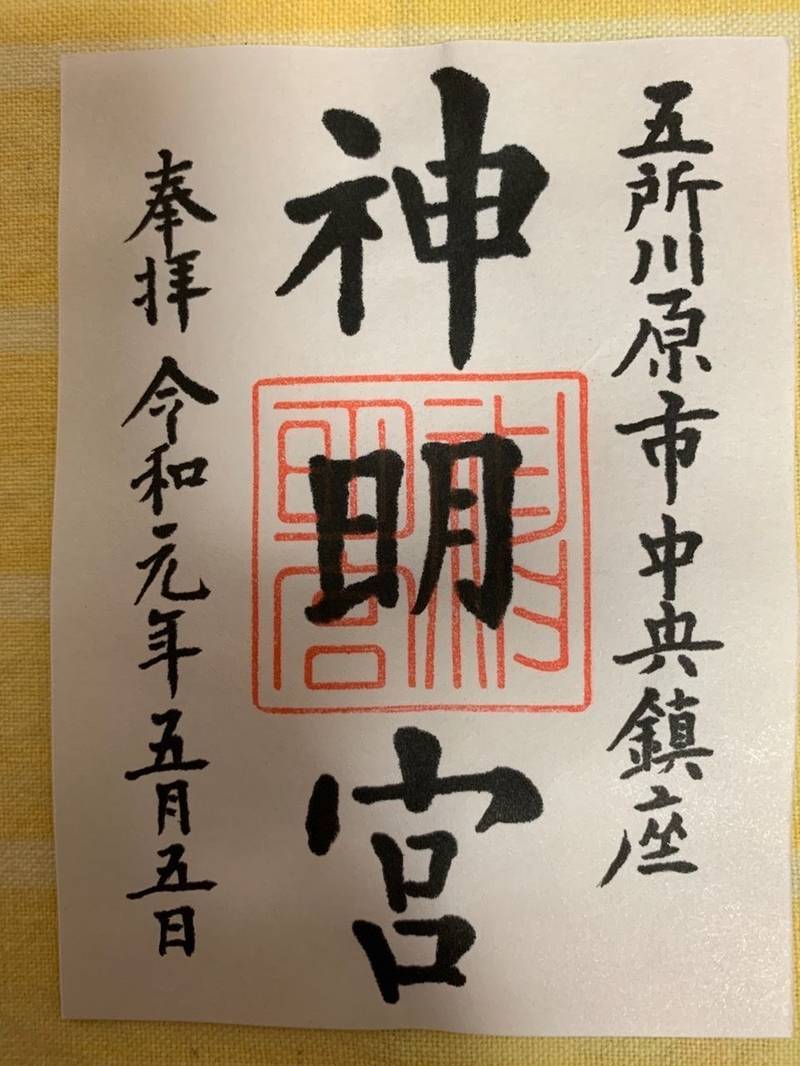 五所川原市中央鎮座
神明宮
奉拝 令和元年五月五日